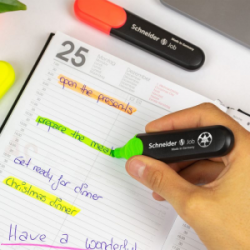 Schneider Job
25
open the presents
prepare the meal
Schneider Job
Get ready for dinner
Christmas dinner
Have a wonderful